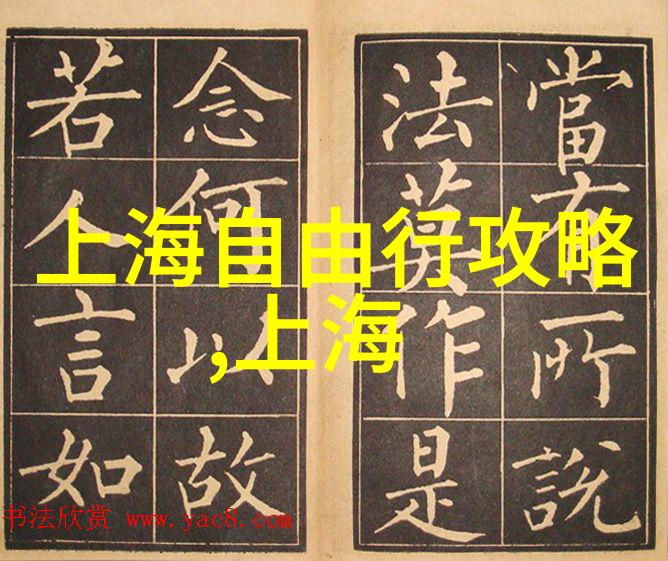 當有所說
法莫作是
念何以故
若人言如
上海自由行攻略
,上海
书法欣赏 www.yac8.com